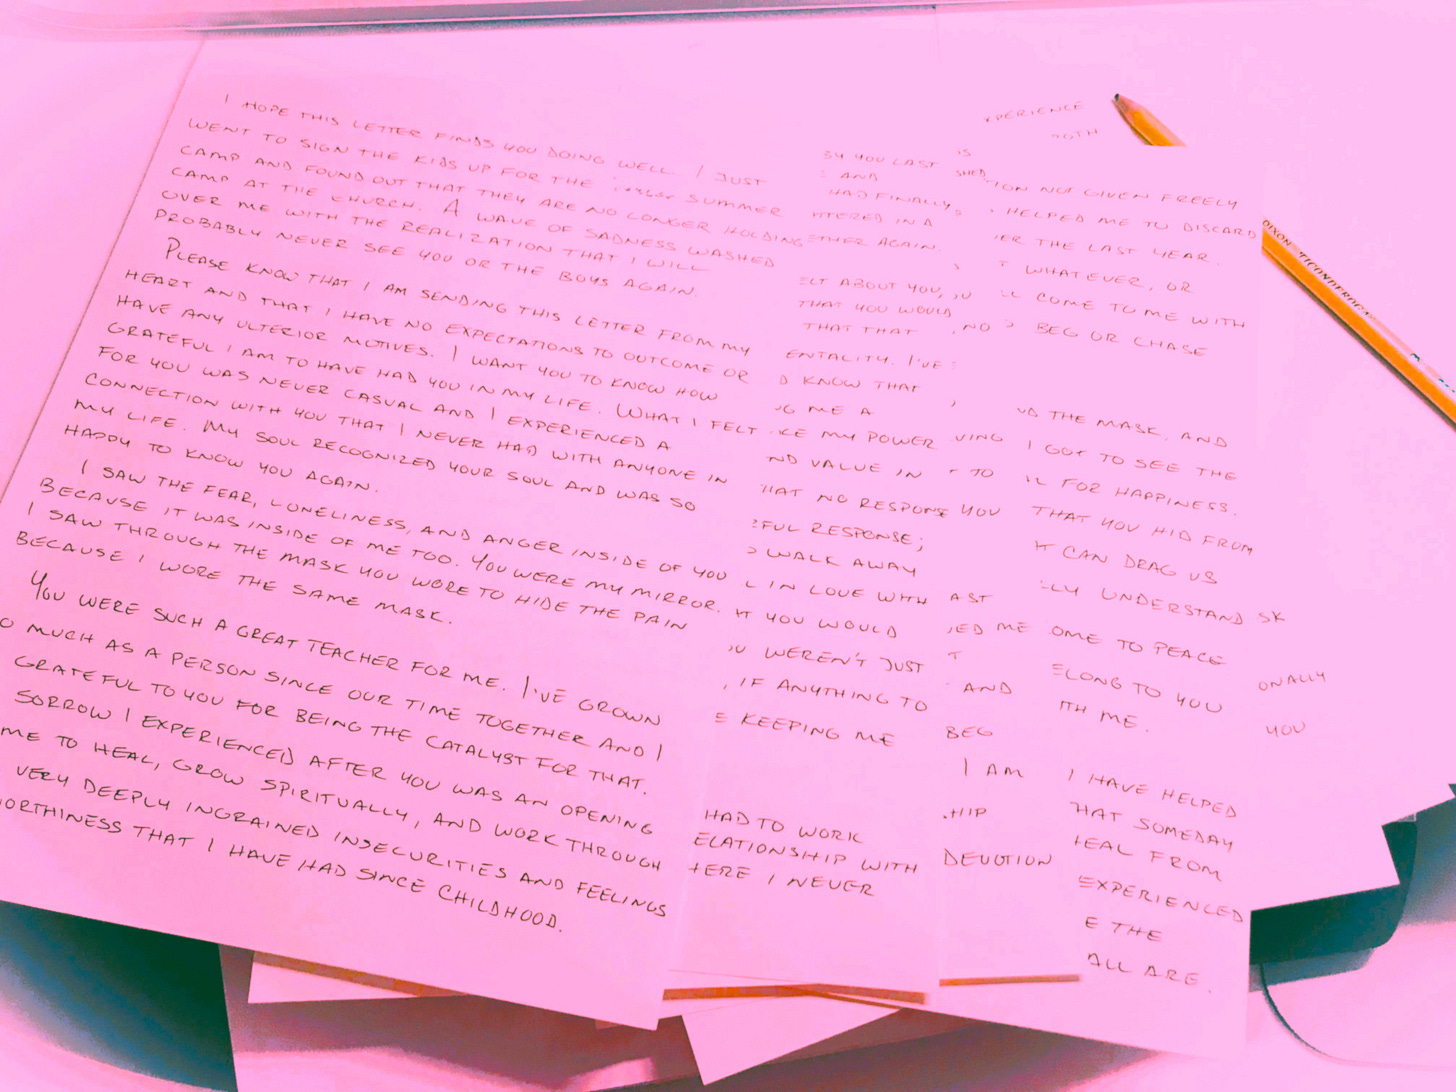 I HOPE THIS LETTER FINDS YOU DOING WELL. I JUST
WENT TO SIGN THE KIDS UP FOR THE SUMMER
CAMP AND FOUND OUT THAT THEY ARE NO LONGER HOLDING
CAMP AT THE CHURCH. A WAVE OF SADNESS WASHED
OVER ME WITH THE REALIZATION THAT I WILL
PROBABLY NEVER SEE YOU OR THE BOYS AGAIN.
PLEASE KNOW THAT I AM SENDING THIS LETTER FROM MY
HEART AND THAT I HAVE NO EXPECTATIONS TO OUTCOME OR
HAVE ANY ULTERIOR MOTIVES. I WANT YOU TO KNOW HOW
GRATEFUL I AM TO HAVE HAD YOU IN MY LIFE. WHAT I FELT
FOR YOU WAS NEVER CASUAL AND I EXPERIENCED A
CONNECTION WITH YOU THAT I NEVER HAD WITH ANYONE IN
MY LIFE. MY SOUL RECOGNIZED YOUR SOUL AND WAS SO
HAPPY TO KNOW YOU AGAIN.
I SAW THE FEAR, LONELINESS, AND ANGER INSIDE OF YOU
BECAUSE IT WAS INSIDE OF ME TOO. YOU WERE MY MIRROR.
I SAW THROUGH THE MASK YOU WORE TO HIDE THE PAIN
BECAUSE I WORE THE SAME MASK.
YOU WERE SUCH A GREAT TEACHER FOR ME. I'VE GROWN
O MUCH AS A PERSON SINCE OUR TIME TOGETHER AND I
GRATEFUL TO YOU FOR BEING THE CATALYST FOR THAT.
SORROW I EXPERIENCED AFTER YOU WAS AN OPENING
ME TO HEAL, GROW SPIRITUALLY, AND WORK THROUGH
VERY DEEPLY INGRAINED INSECURITIES AND FEELINGS
ORTHINESS THAT I HAVE HAD SINCE CHILDHOOD.
BY YOU LAST
AND
HAD FINALLY
TERED IN A
ETHER AGAIN.
ELT ABOUT YOU,
THAT YOU WOULD
THAT THAT
ENTALITY. I'VE
D KNOW THAT
G ME A
KE MY POWER
ND VALUE IN
HAT NO RESPONSE
FUL RESPONSE;
O WALK AWAY
L IN LOVE WITH
T YOU WOULD
U WEREN'T JUST
, IF ANYTHING TO
E KEEPING ME
HAD TO WORK
ELATIONSHIP WITH
HERE I NEVER
IS
SHED
NO
VING
TO
YOU
AST
ED ME
T
AND
BEG
I AM
HIP
DEVOTION
ION NOT GIVEN FREELY
HELPED ME TO DISCARD
ER THE LAST YEAR.
WHATEVER, OR
LL COME TO ME WITH
BEG OR CHASE
D THE MASK, AND
I GOT TO SEE THE
L FOR HAPPINESS.
THAT YOU HID FROM
T CAN DRAG US
LLY UNDERSTAND
OME TO PEACE
ELONG TO YOU
ITH ME.
I HAVE HELPED
HAT SOMEDAY
HEAL FROM
EXPERIENCED
E THE
ALL ARE.
XPERIENCE
OTH
SK
ONALLY
YOU
DIXON TICONDEROGA